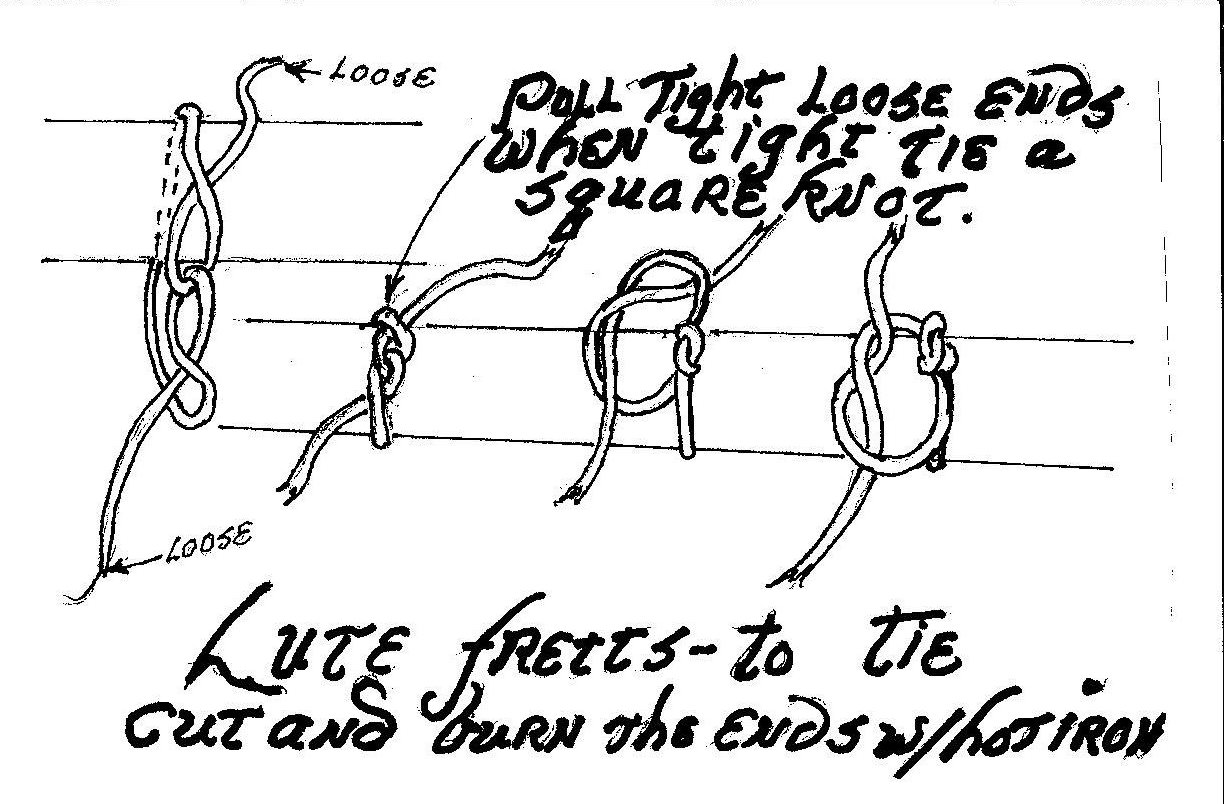 LOOSE
PULL Tight LOOSE ENDS
WHEN tight TIE a
SquaRE KNOT.
LOOSE
LUTE fRETTS - to TIE
CUT AND burN the ENDS w/hot IRON